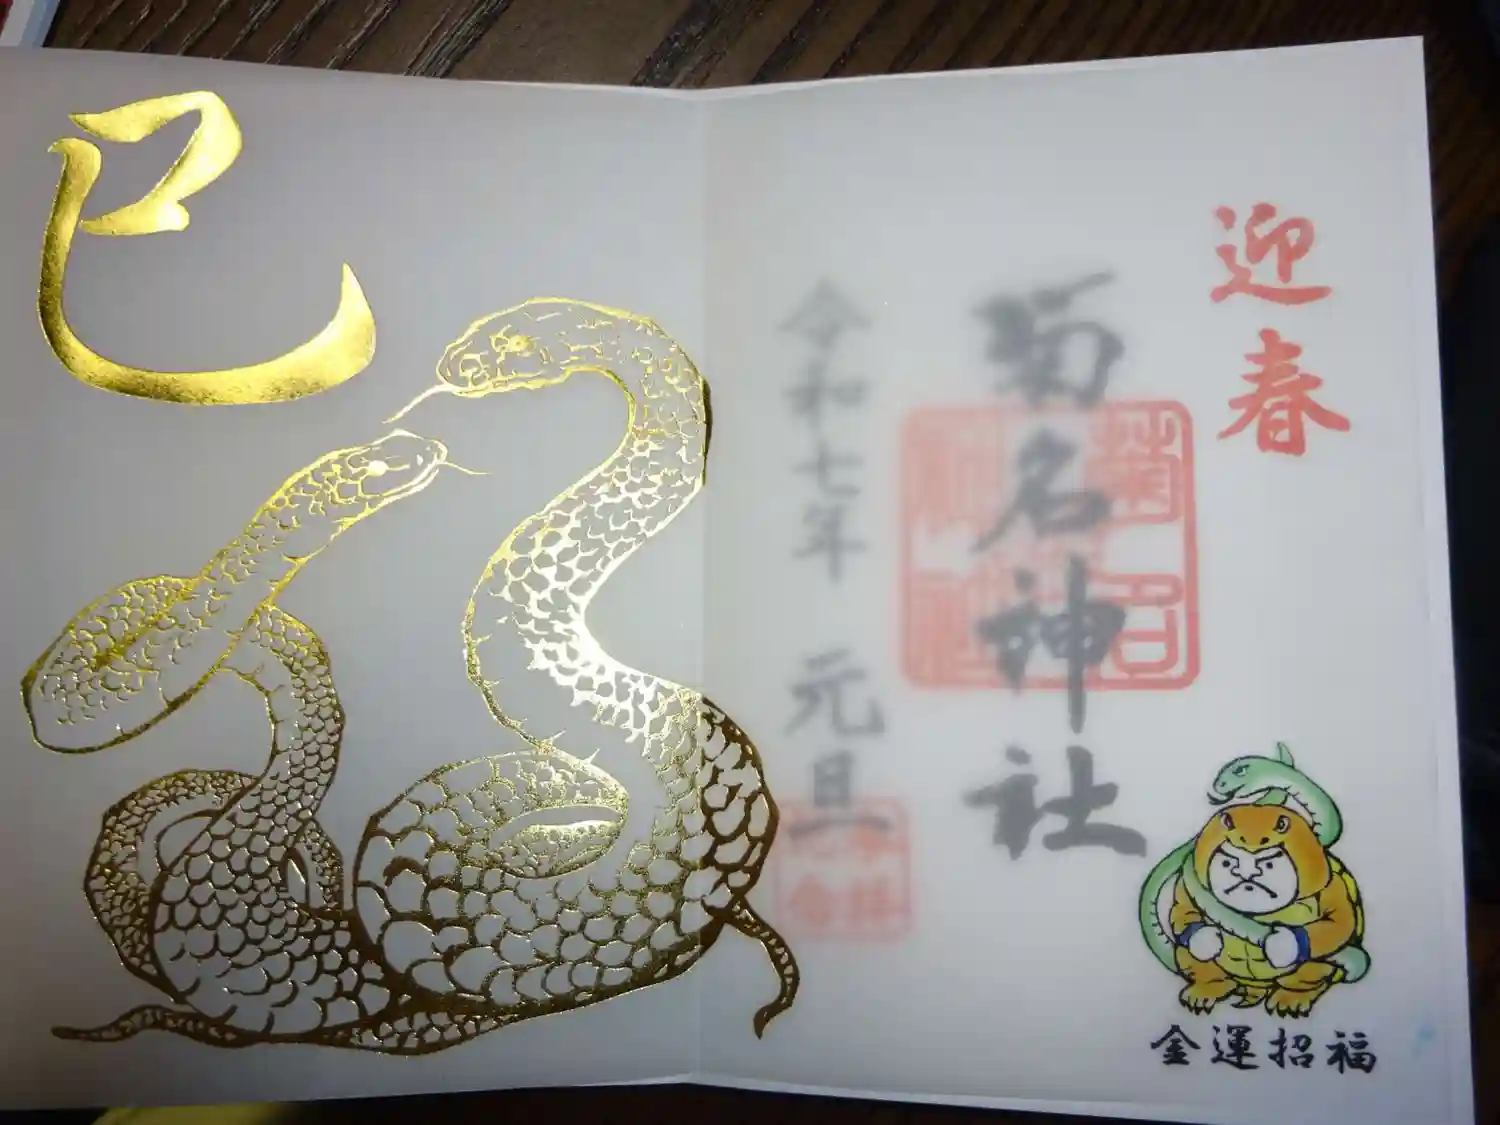 迎春
菊名神社
令和七年 元旦
巳
金運招福